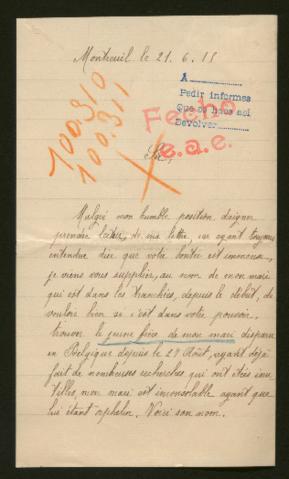 Montreuil le 21.6.15
A
Pedir informes
Que se haga aci
Devolver
Fecho
e.a.e.
100.310
100.311
Sir,
Malgré mon humble position daigner
prendre lecture, de ma lettre, ur ayant toujours
entendue dire que votre bontée est immense
je viens vous supplier, au nom de mon mari
qui est dans les tranchées, depuis le début, de
vouloir bien se s'est dans votre pouvoir.
trouver le jeune frère de mon mari disparu
en Belgique depuis le 29 Août, ayant déjà
fait de nombreuses recherches qui ont étées inu-
tilles, mon mari est inconsolable ayant que
lui étant orphelin. Voici son nom.